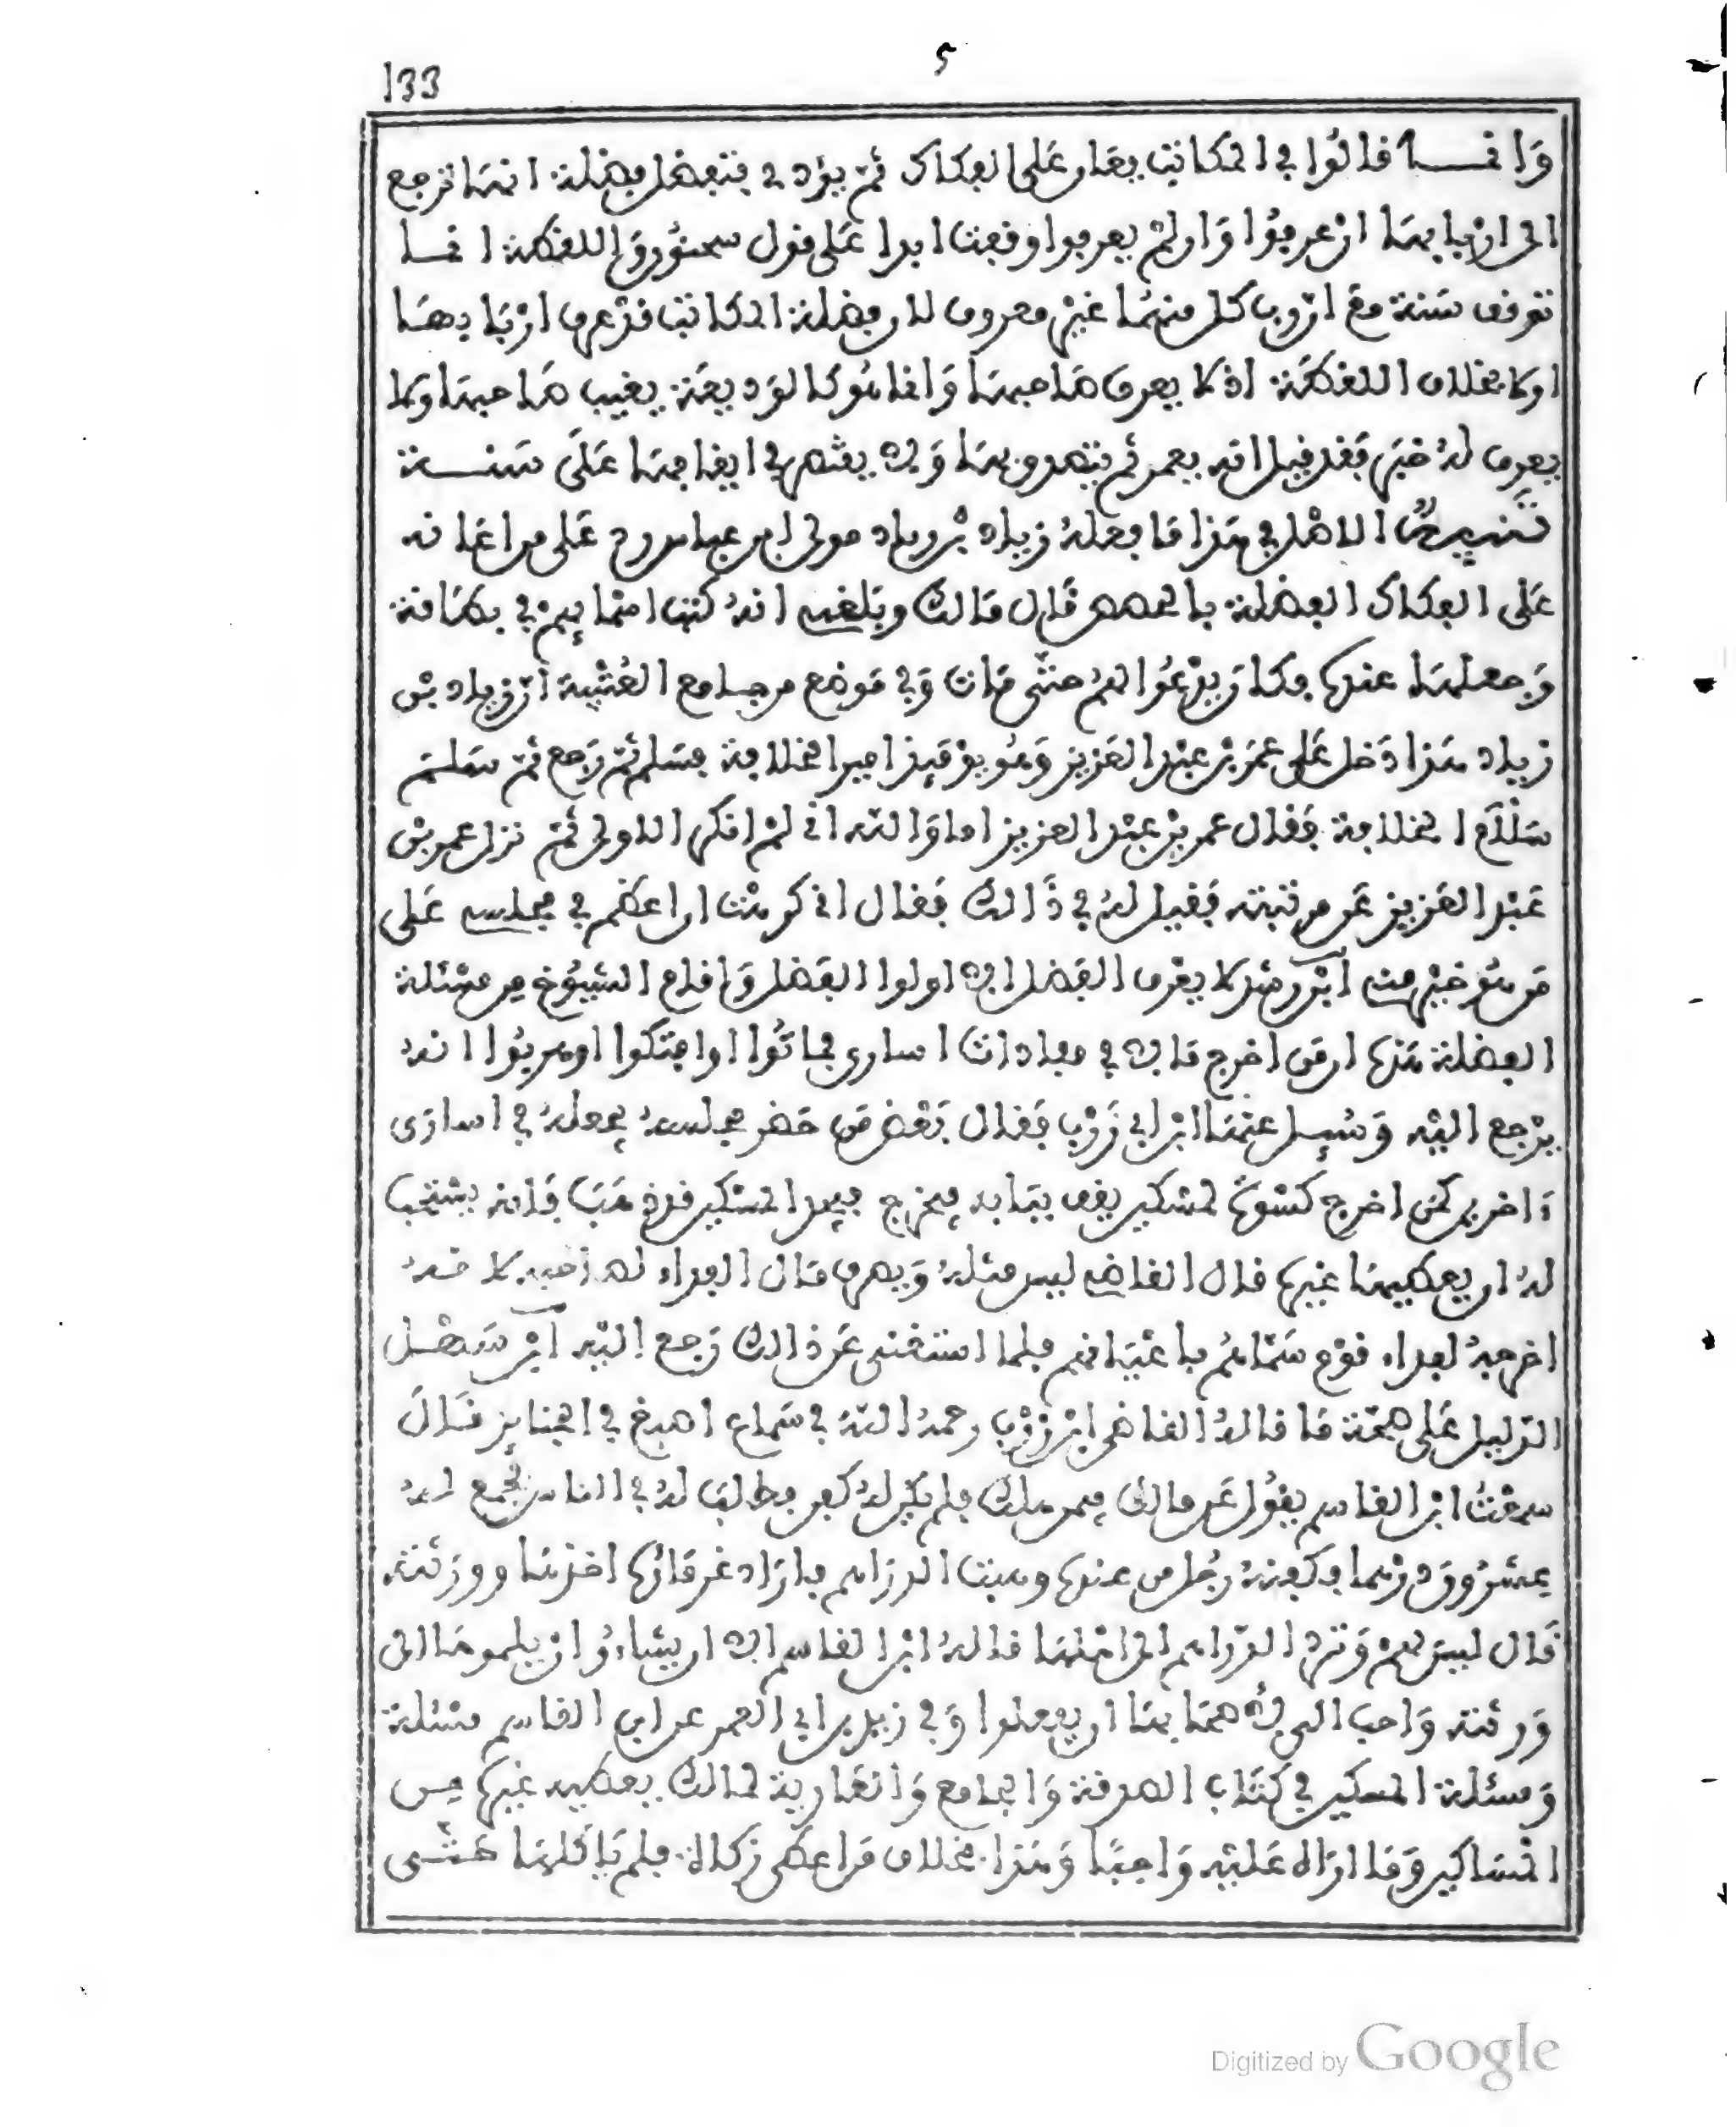 133
5
وانمـا قالوا في المكاتب يعان على الفكاك ثم يؤدي فتفضل فضلة انها ترجع
الى اربابها ان عرفوا وان لم يعرفوا وقفت ابدا على قول سحنون واللقطة انما
توقف سنة مع ان رب كل منهما غير معروف لان فضلة المكاتب قد عرف اربابها
اولا بخلاف اللقطة اذ لا يعرف صاحبها وانما هو كالوديعة يغيب صاحبها ولا
يعرف له خبر فقد قيل انه يعمر ثم يتصدق بها ولا يقتصر في ايقافها على سنـة
تنبيه الاصل في هذا ما فعله زياد بن زياد مولى ابن عباس رد على من اعانه
على الفكاك الفضلة بالحصص قال مالك وبلغني انه كتب اسماءهم في بطاقة
وجعلها عنده فكان يدعو لهم حتى مات وفي موضع من جامع العتبية ان زياد بن
زياد هذا دخل على عمر بن عبد العزيز وهو يومئذ امير الخلافة فسلم ثم رجع ثم سلم
سلام الخلافة فقال عمر بن عبد العزيز اما والله اني لم انكر الاولى ثم نزل عمر بن
عبد العزيز عن مرتبته فقيل له في ذالك فقال اني كرهت ان اعظم في مجلسي على
من هو خير مني ابن رشد لا يعرف الفضل الا اولوا الفضل واقام الشيوخ من مسئلة
الفضلة هذه ان من اخرج مالا في مفادات اسارى فماتوا او افتكوا او هربوا انه
يرجع اليه وسيل عنها ابن ابي زيد فقال بعض من حضر مجلسه يجعله في اسارى
ءاخرين كمن اخرج كسرة لمسكين يقف ببابه فيخرج فيجد المسكين قد ذهب فانه يستحب
له ان يعطيها غيره قال القاضي ليس مثله ويصرف مال الفداء لصاحبه لا نـه
اخرجه لفداء قوم سماهم باعيانهم فلما استغنى عن ذالك رجع اليه ابن سهل
الدليل على صحة ما قاله القاضي ابن زرب رحمه الله في سماع اصبغ في الجنايز قال
سمعت ابن القاسم يقول عن مالك فيمن هلك فلم يكن له كفن فطلب له في الناس فجمع له
عشرون درهما فكفنه رجل من عنده وبقيت الدراهم فاراد غرماؤه اخذها وورثته
قال ليس لهم وترد الدراهم الى اهلها قال ابن القاسم الا ان يشاءوا ان يسلموها الى
ورثته واحب الى لاصحابها ان يفعلوا وفي زيد بن ابي الغمر عن ابن القاسم مثله
ومسئلة المسكين في كتاب الصدقة والجامع والعارية لمالك يعطيه غيره من
المساكين وما اراه عليه واجبا وهذا بخلاف من اعطى زكاة فلم يأكلها حتى
Digitized by Google